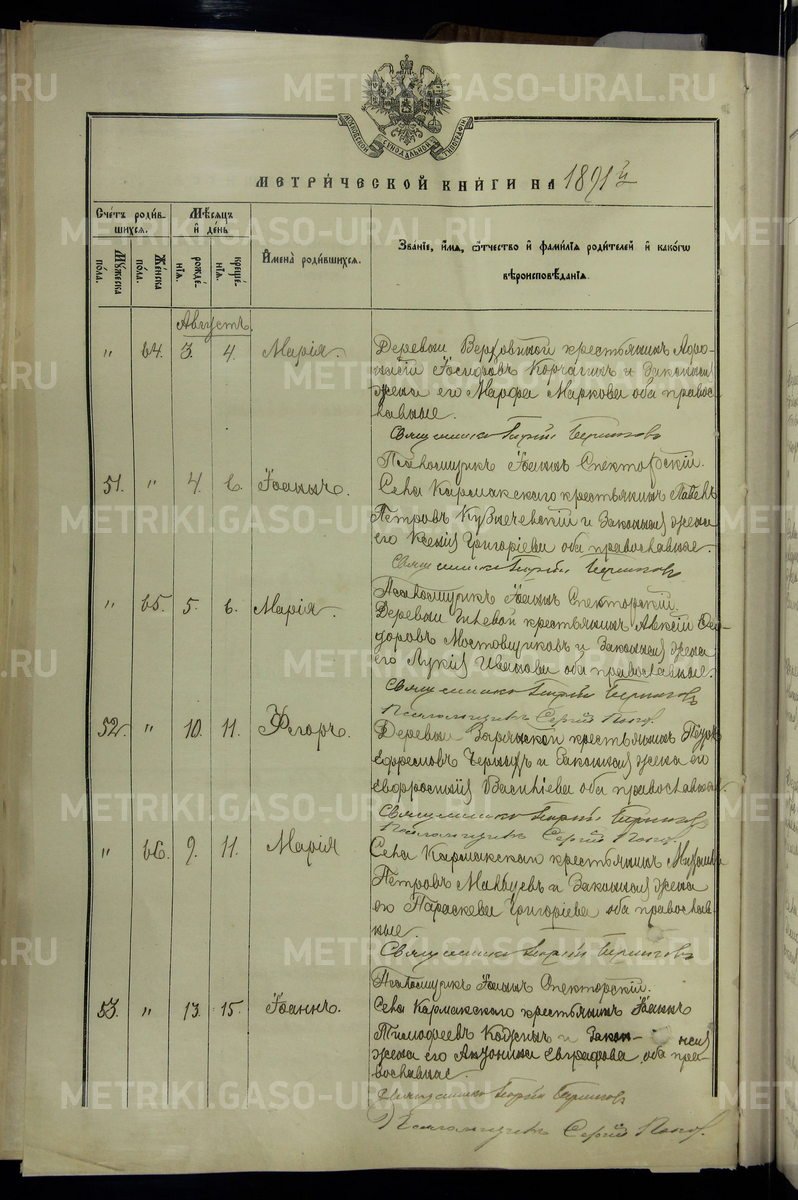 МОСКОВСКОЙ СѴНОДАЛЬНОЙ ТИПОГРАФІИ
МЕТРИ́ЧЕСКОЙ КНИ́ГИ НА 1891й
Сче́тъ роди́в-
шихся.
Мѣ́сяцъ
и́ де́нь
Мꙋжеска
пола.
Же́нска
по́ла.
рожде́-
нїя.
креще́-
нїя.
И҆мена̀ роди́вшихся.
Зва́нїе, и҆́мѧ, ѻ҆́тчество и҆ фами́лїѧ роди́телей и҆ како́гѡ
вѣроисповѣ́данїѧ.
Августъ.
" 64. 3. 4. Марія.
Деревни Верховиной крестьянинъ Афо-
насій Іосифовъ Корчагинъ и законная
жена его Марфа Маркова оба правос-
лавные.
Священникъ Георгій Черниговъ
Псаломщикъ Іоаннъ Спекторскій.
51. " 4. 6. Іоаннъ.
Села Кармакскаго крестьянинъ Павелъ
Петровъ Кузнечевскій и законная жена
его Ксенія Григоріева оба православные.
Священникъ Георгій Черниговъ
Псаломщикъ Іоаннъ Спекторскій.
" 65. 5. 6. Марія.
Деревни Гилевой крестьянинъ Алексій Фео-
доровъ Мостовщиковъ и законная жена
его Лукія Иванова оба православные.
Священникъ Георгій Черниговъ
Псаломщикъ Сергій Поповъ.
52. " 10. 11. Ѳегоръ.
Деревни крестьянинъ Петръ
Ефремовъ и законная жена его
Евфросинія Василіева оба православные.
Священникъ Георгій Черниговъ
Псаломщикъ Сергій Поповъ
" 66. 9. 11. Марія
Села Кармакскаго крестьянинъ Михаилъ
Петровъ и законная жена
его Параскева Григоріева оба православ-
ные.
Священникъ Георгій Черниговъ
Псаломщикъ Іоаннъ Спекторскій.
53. " 13. 15. Іоаннъ.
Села Кармакскаго крестьянинъ Іоаннъ
Тимофеевъ и закон- ная
жена его Евграфова оба пра-
вославные.
Священникъ Георгій Черниговъ
Псаломщикъ Сергій Поповъ.
METRIKI.GASO-URAL.RU